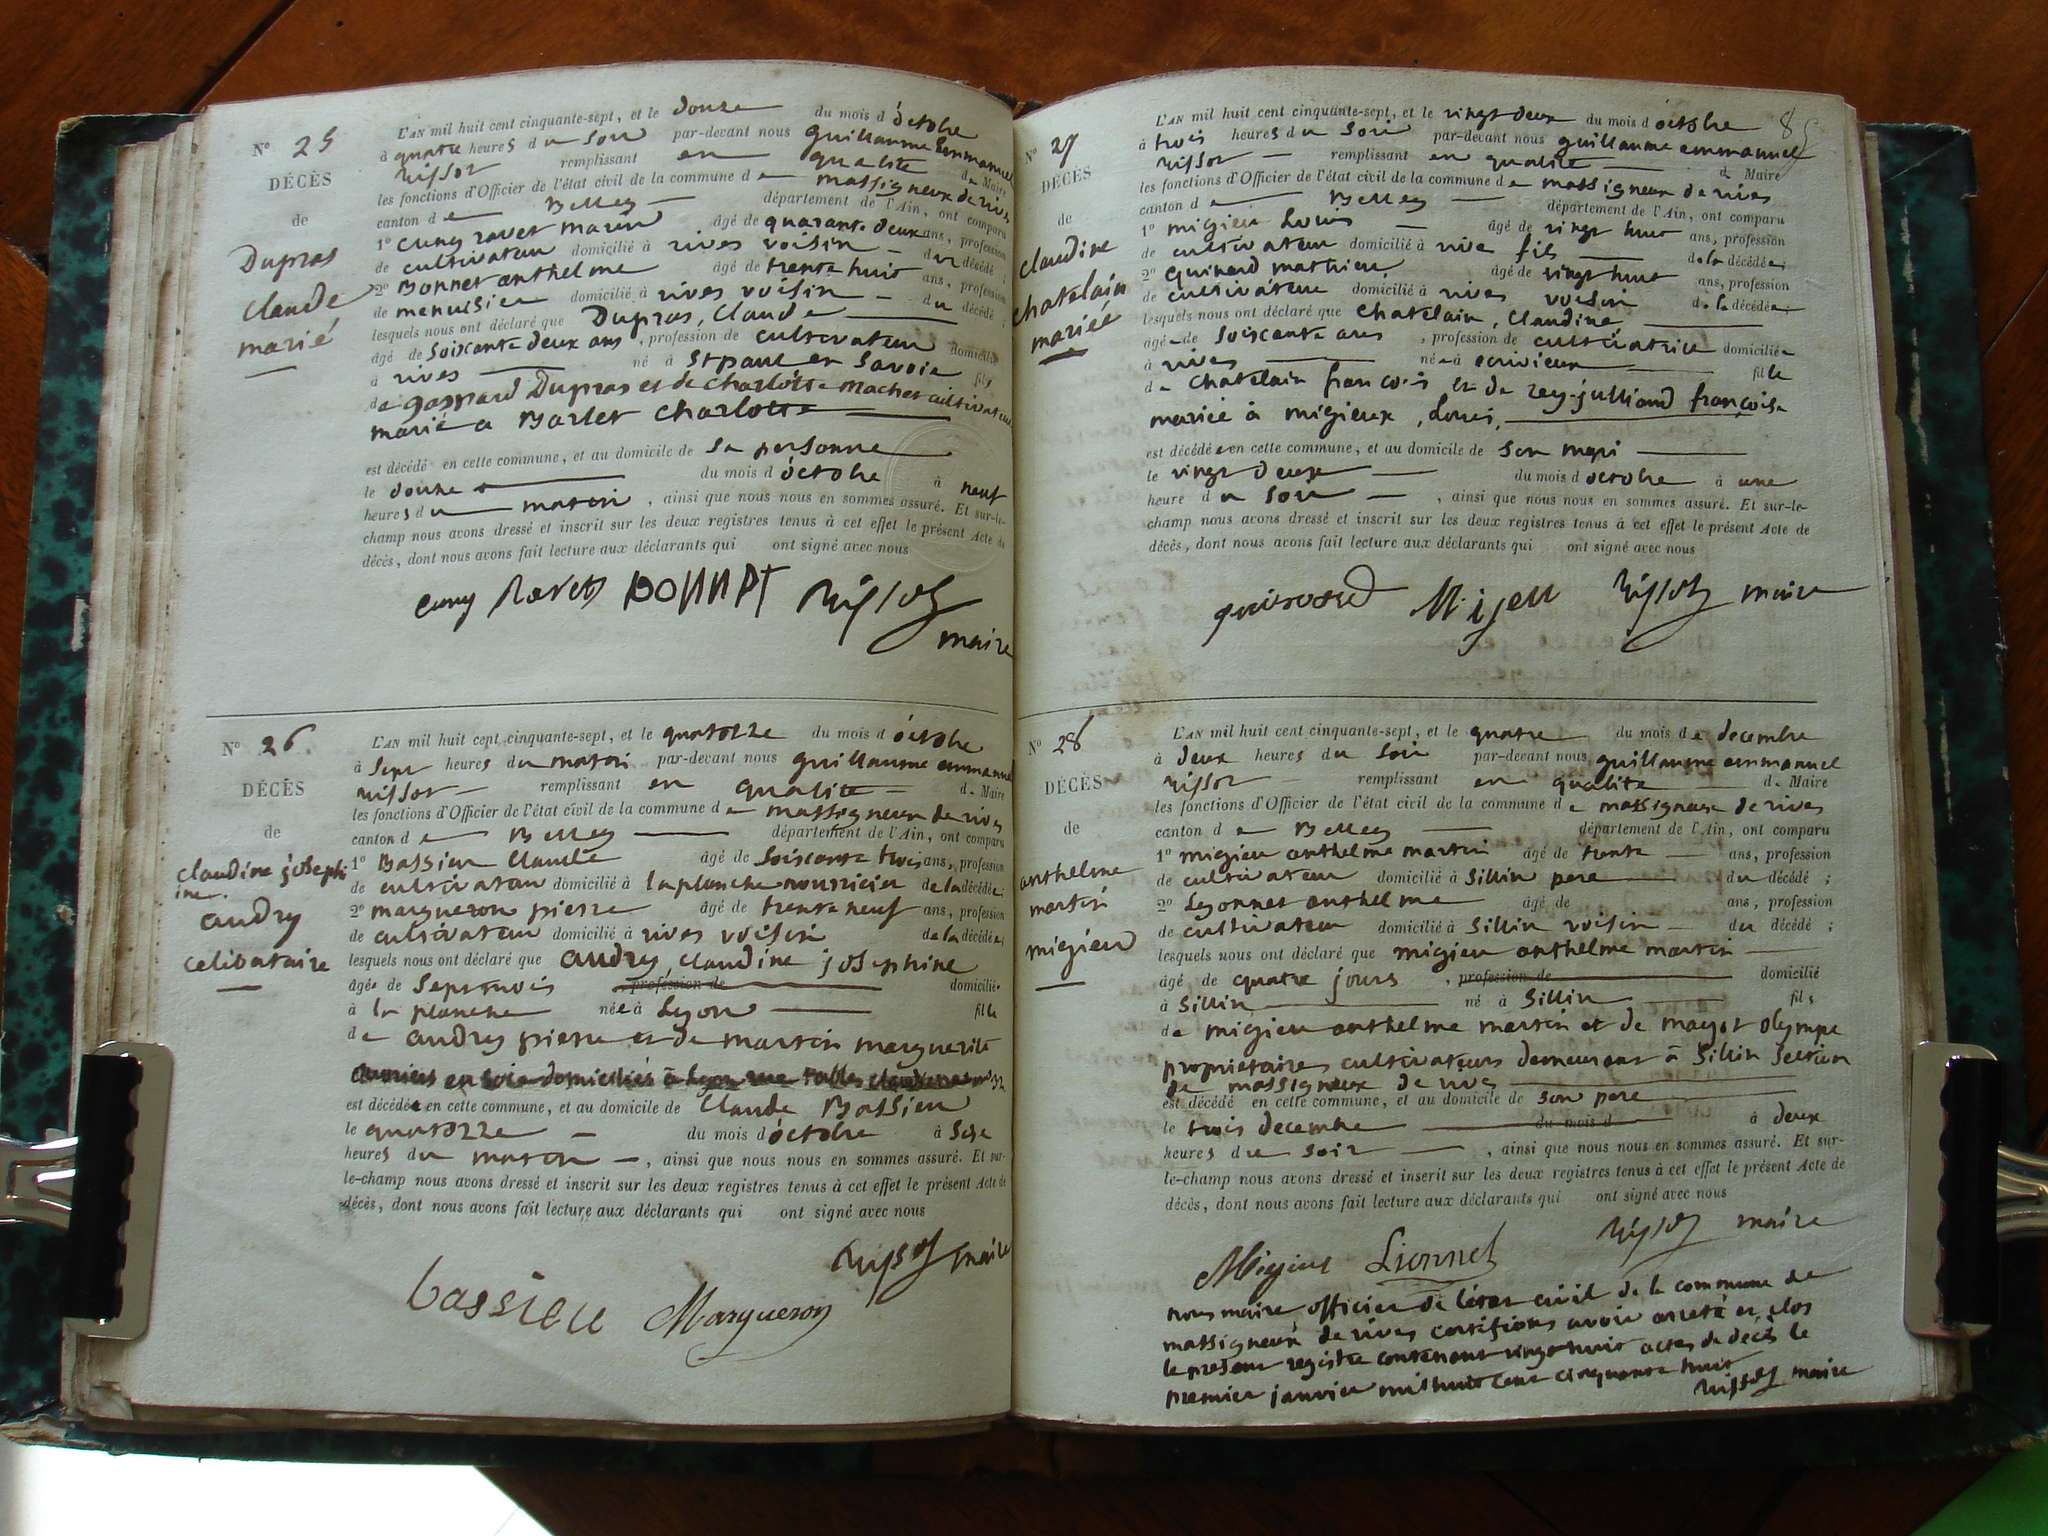 N° 25
DÉCÈS
de
Dupras
Claude
marié
L'AN mil huit cent cinquante-sept, et le douze du mois d'octobre
à quatre heures du soir par-devant nous guillaume emmanuel
rissot remplissant en qualité de Maire
les fonctions d'Officier de l'état civil de la commune de massigneux de rives
canton de Belley département de l'Ain, ont comparu
1° Cuny ravet marin âgé de quarante deux ans, profession
de cultivateur domicilié à rives voisin du décédé ;
2° Bonnet anthelme âgé de trente huit ans, profession
de menuisier domicilié à rives voisin du décédé ;
lesquels nous ont déclaré que Dupras, Claude
âgé de soixante deux ans, profession de cultivateur domicilié
à rives né à St paul en Savoie fils
de gaspard Dupras et de Charlotte Machet cultivateur
marié a Barlet Charlotte
est décédé en cette commune, et au domicile de sa personne
le douze du mois d'octobre à neuf
heures du matin, ainsi que nous nous en sommes assuré. Et sur-le-
champ nous avons dressé et inscrit sur les deux registres tenus à cet effet le présent Acte de
décès, dont nous avons fait lecture aux déclarants qui ont signé avec nous
cuny Ravet BONNET Rissot
maire
N° 26
DÉCÈS
de
claudine joseph
ine
audry
celibataire
L'AN mil huit cent cinquante-sept, et le quatorze du mois d'octobre
à sept heures du matin par-devant nous guillaume emmanuel
rissot remplissant en qualité de Maire
les fonctions d'Officier de l'état civil de la commune de massigneux de rives
canton de Belley département de l'Ain, ont comparu
1° Bassieu Claude âgé de soixante trois ans, profession
de cultivateur domicilié à la planche nourricier de la décédée ;
2° margueron pierre âgé de trente neuf ans, profession
de cultivateur domicilié à rives voisin de la décédée ;
lesquels nous ont déclaré que audry, claudine josephine
âgée de sept mois profession de domiciliée
à la planche née à Lyon fille
de audry pierre et de martin marguerite
ouvriers en soie domiciliés à Lyon rue tables claudienes n° 32
est décédée en cette commune, et au domicile de Claude Bassieu
le quatorze du mois d'octobre à six
heures du matin, ainsi que nous nous en sommes assuré. Et sur-
le-champ nous avons dressé et inscrit sur les deux registres tenus à cet effet le présent Acte de
décès, dont nous avons fait lecture aux déclarants qui ont signé avec nous
Rissot maire
bassieu Margueron
85
N° 27
DÉCÈS
de
claudine
chatelain
mariée
L'AN mil huit cent cinquante-sept, et le vingt deux du mois d'octobre
à trois heures du soir par-devant nous guillaume emmanuel
rissot remplissant en qualité de Maire
les fonctions d'Officier de l'état civil de la commune de massigneux de rives
canton de Belley département de l'Ain, ont comparu
1° migieu Louis âgé de vingt huit ans, profession
de cultivateur domicilié à rive fils de la décédée ;
2° Guinard mathieu âgé de vingt huit ans, profession
de cultivateur domicilié à rives voisin de la décédée ;
lesquels nous ont déclaré que chatelain, claudine
âgée de soixante ans, profession de cultivatrice domiciliée
à rives née à ecrivieux fille
de chatelain françois et de rey-julliand françoise
mariée à migieux, Louis,
est décédée en cette commune, et au domicile de son mari
le vingt deux du mois d'octobre à une
heure du soir, ainsi que nous nous en sommes assuré. Et sur-le-
champ nous avons dressé et inscrit sur les deux registres tenus à cet effet le présent Acte de
décès, dont nous avons fait lecture aux déclarants qui ont signé avec nous
Migieu Rissot maire
N° 28
DÉCÈS
de
anthelme
martin
migieu
L'AN mil huit cent cinquante-sept, et le quatre du mois de decembre
à deux heures du soir par-devant nous guillaume emmanuel
rissot remplissant en qualité de Maire
les fonctions d'Officier de l'état civil de la commune de massigneux de rives
canton de Belley département de l'Ain, ont comparu
1° migieu anthelme martin âgé de trente ans, profession
de cultivateur domicilié à Sillin pere du décédé ;
2° Leyonnet anthelme âgé de ans, profession
de cultivateur domicilié à Sillin voisin du décédé ;
lesquels nous ont déclaré que migieu anthelme martin
âgé de quatre jours, profession de domicilié
à Sillin né à Sillin fils
de migieu anthelme martin et de mayot olympe
proprietaires cultivateurs demeurant à Sillin Section
de massigneux de rives
est décédé en cette commune, et au domicile de son pere
le trois decembre du mois d à deux
heures du soir, ainsi que nous nous en sommes assuré. Et sur-
le-champ nous avons dressé et inscrit sur les deux registres tenus à cet effet le présent Acte de
décès, dont nous avons fait lecture aux déclarants qui ont signé avec nous
Rissot maire
Migieu Lionnet
nous maire officier de l'état civil de la commune de
massigneux de rives certifions avoir arreté et clos
le present registre contenant vingt huit actes de décès le
premier janvier mil huit cent cinquante huit
Rissot maire